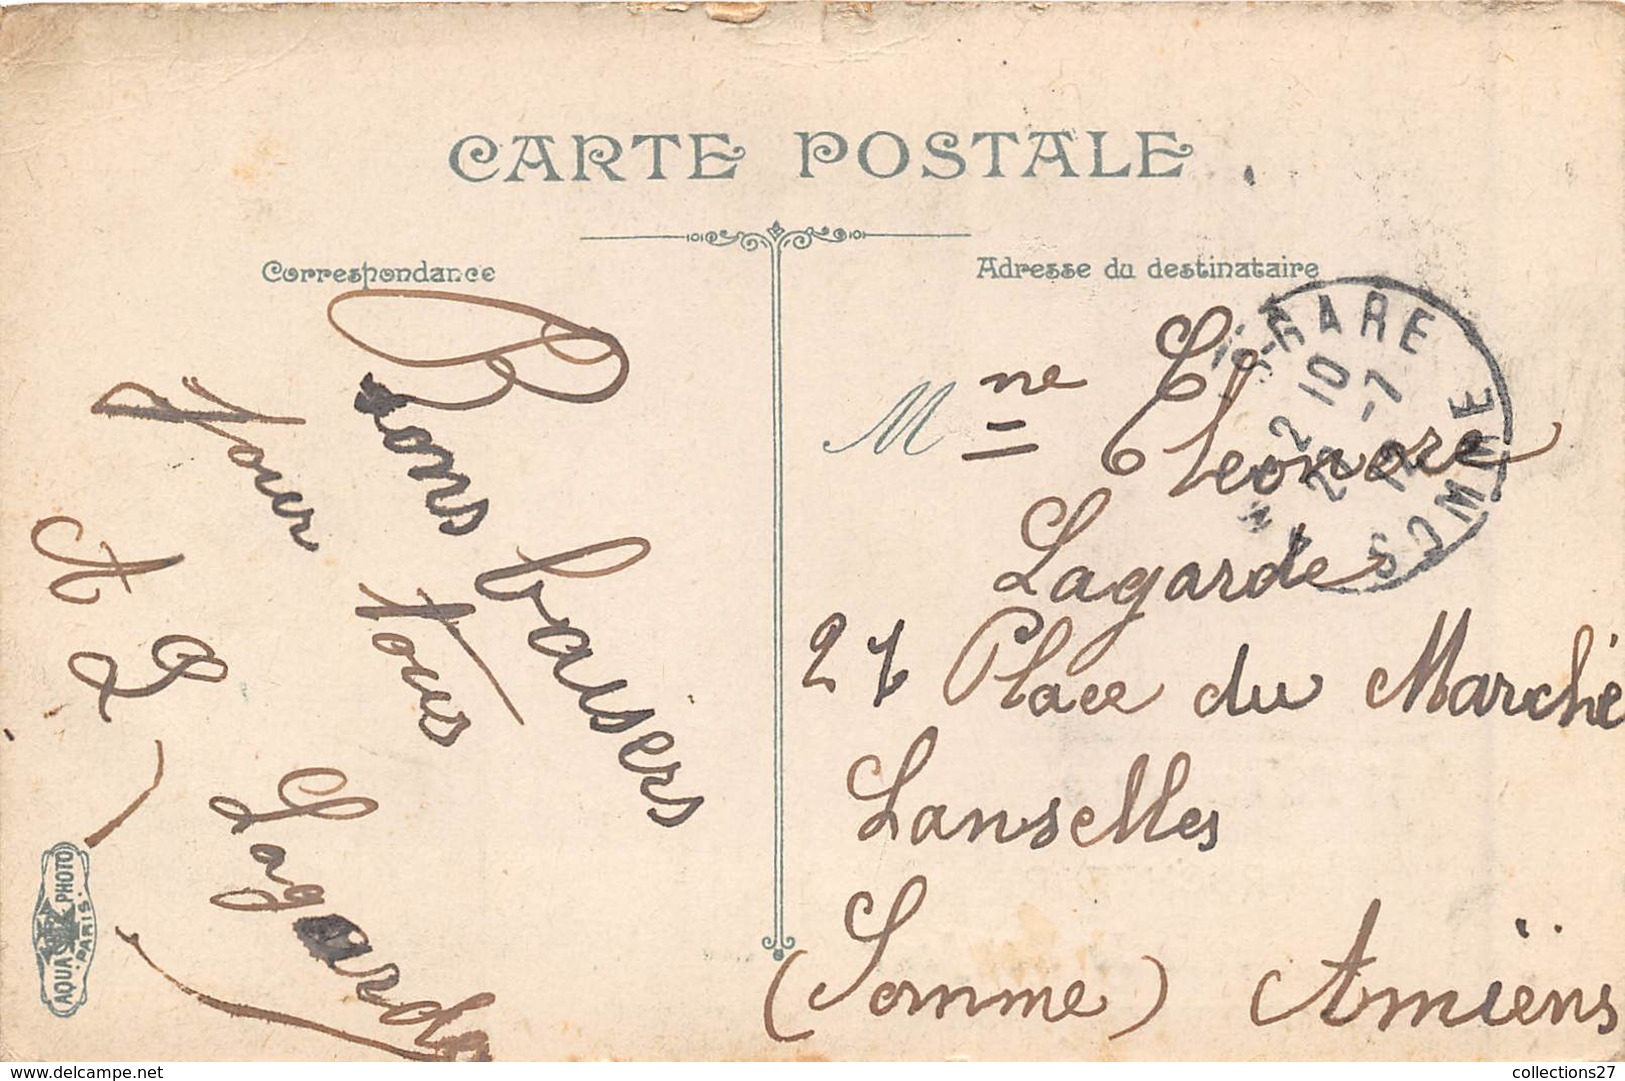 CARTE POSTALE
Correspondance
Bons baisers
pour tous
A L
Lagarde
AQUA PHOTO
PARIS.
Adresse du destinataire
Mme Eleonore
Lagarde
27 Place du Marché
Lanselles
(Somme) Amïens
GARE
2 10
-7
12
SOMME
www.delcampe.net
collections27